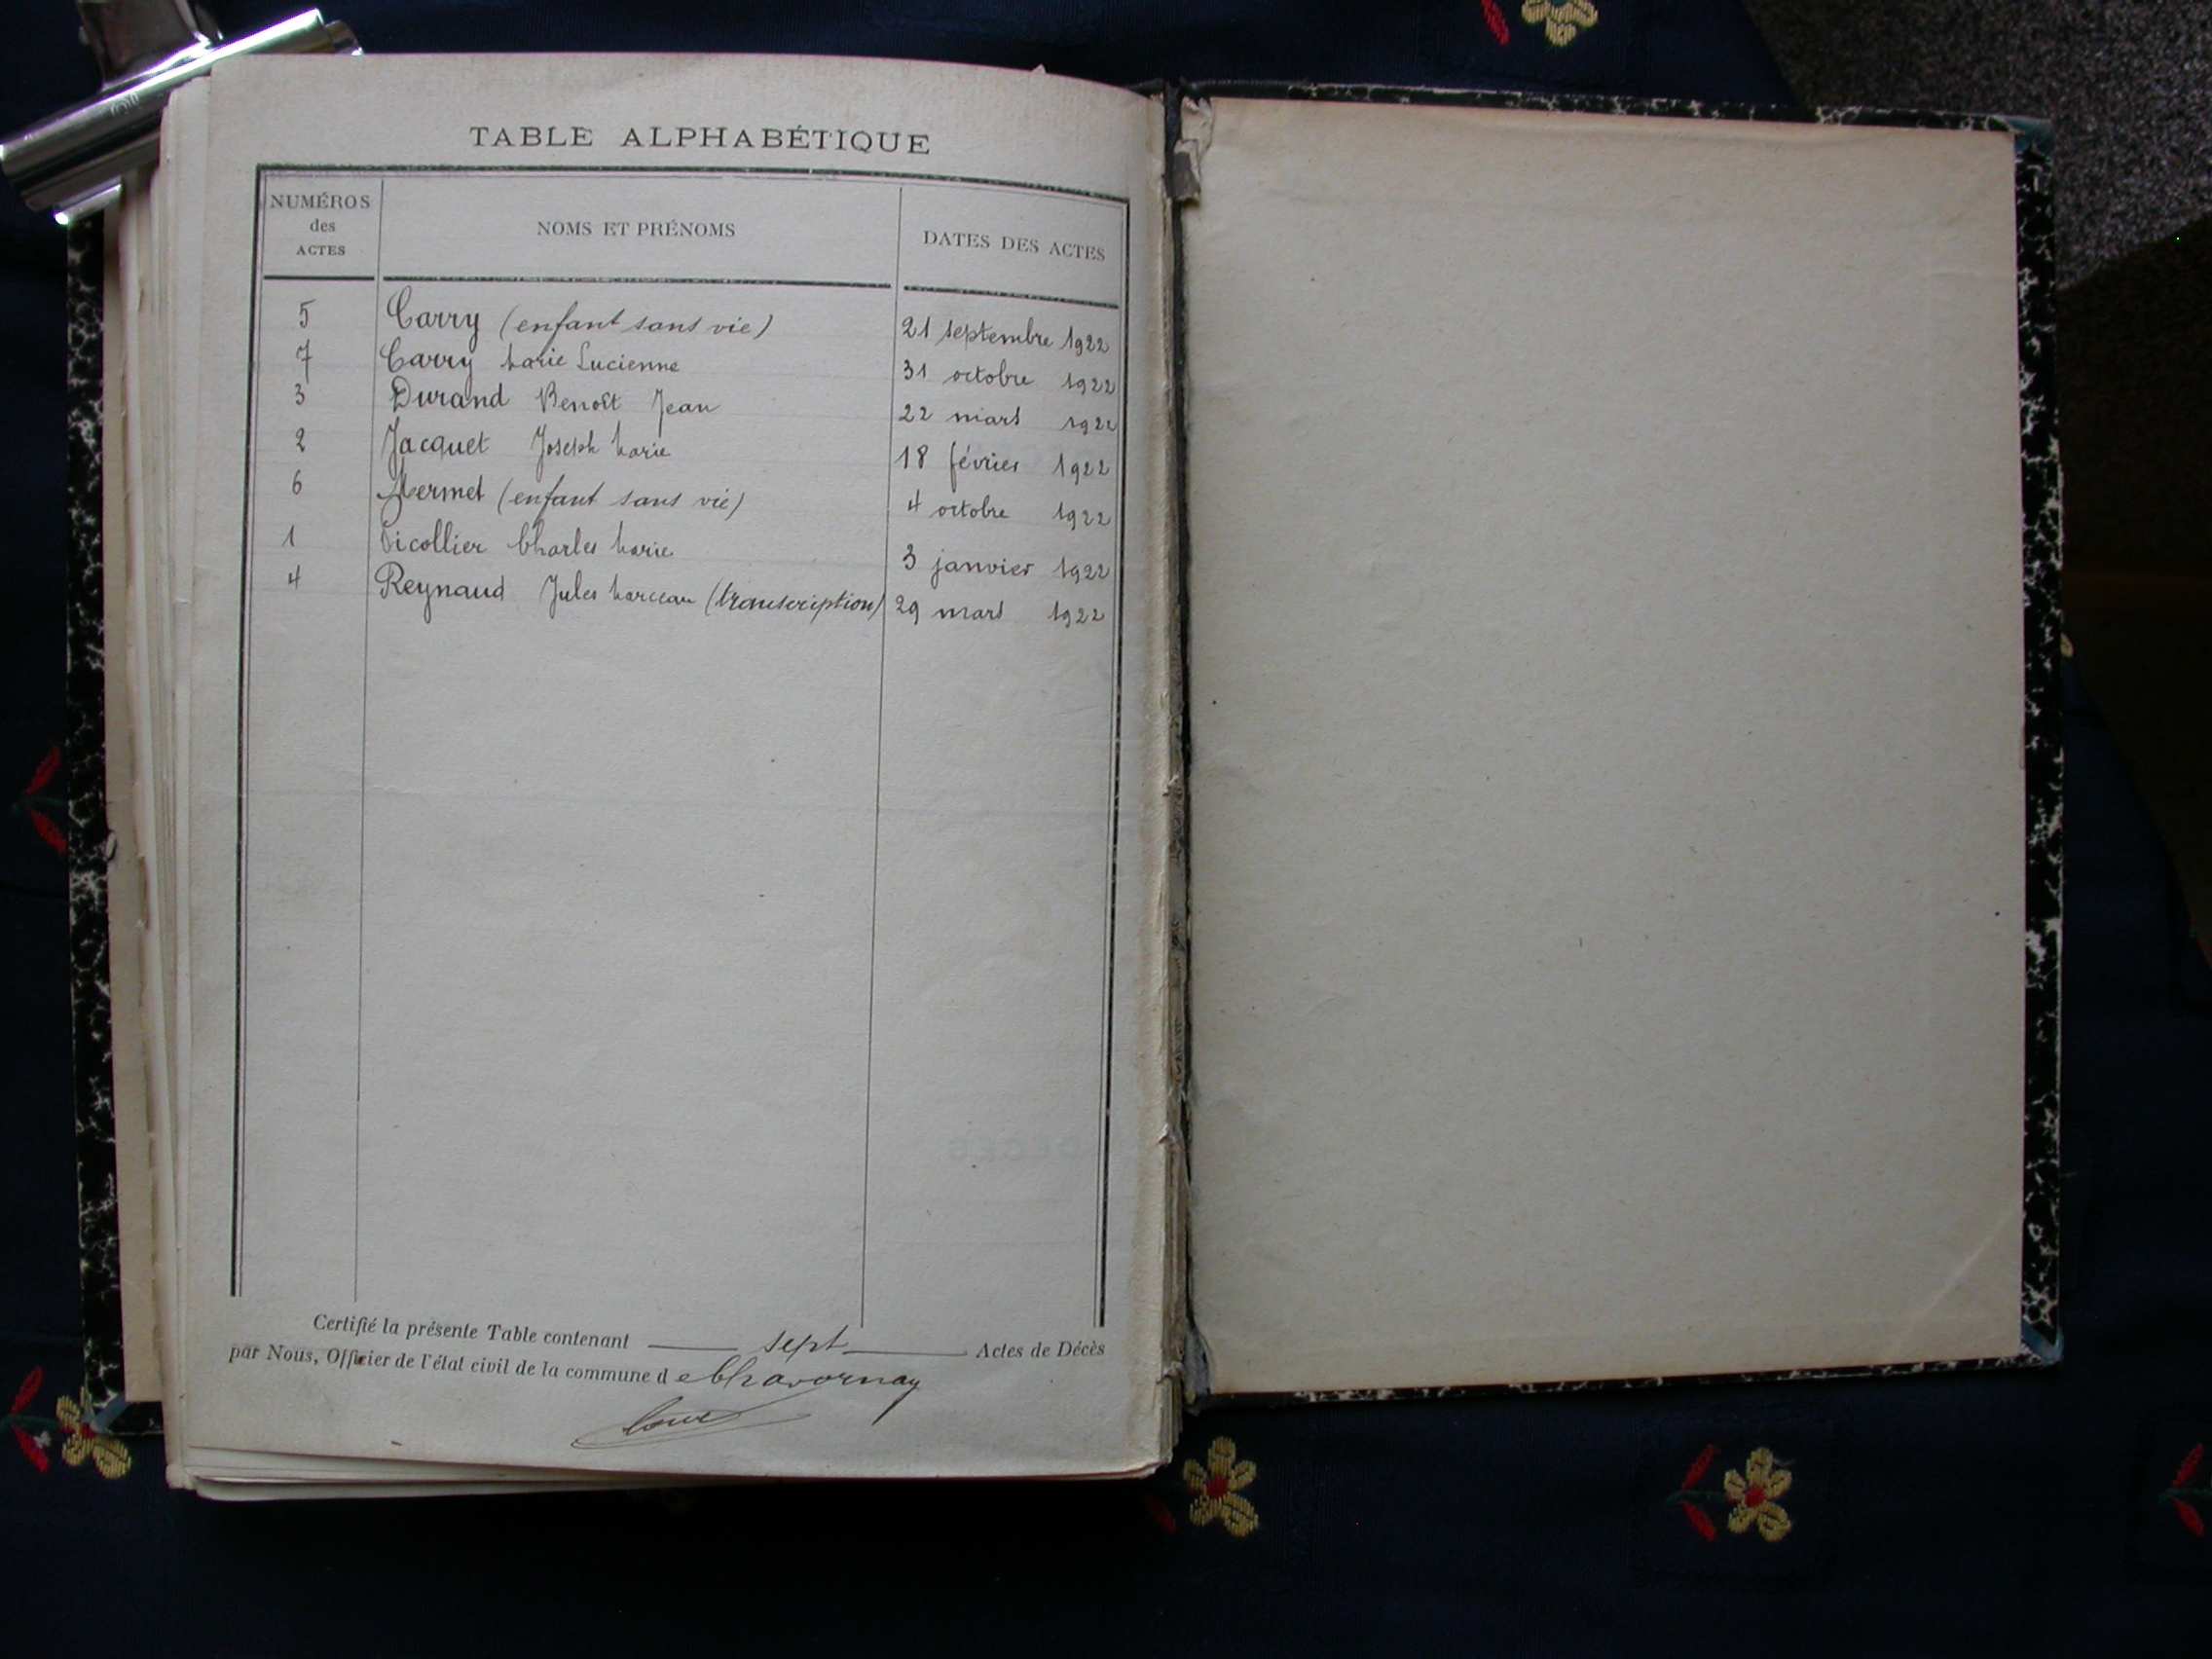 TABLE ALPHABÉTIQUE
NUMÉROS des ACTES NOMS ET PRÉNOMS DATES DES ACTES
5 Carry (enfant sans vie) 21 septembre 1922
7 Carry Marie Lucienne 31 octobre 1922
3 Durand Benoît Jean 22 mars 1922
2 Jacquet Joseph Marie 18 février 1922
6 Mermet (enfant sans vie) 4 octobre 1922
1 Picollier Charles Marie 3 janvier 1922
4 Reynaud Jules Marceau (transcription) 29 mars 1922
Certifié la présente Table contenant sept Actes de Décès
par Nous, Officier de l'état civil de la commune de Chavornay